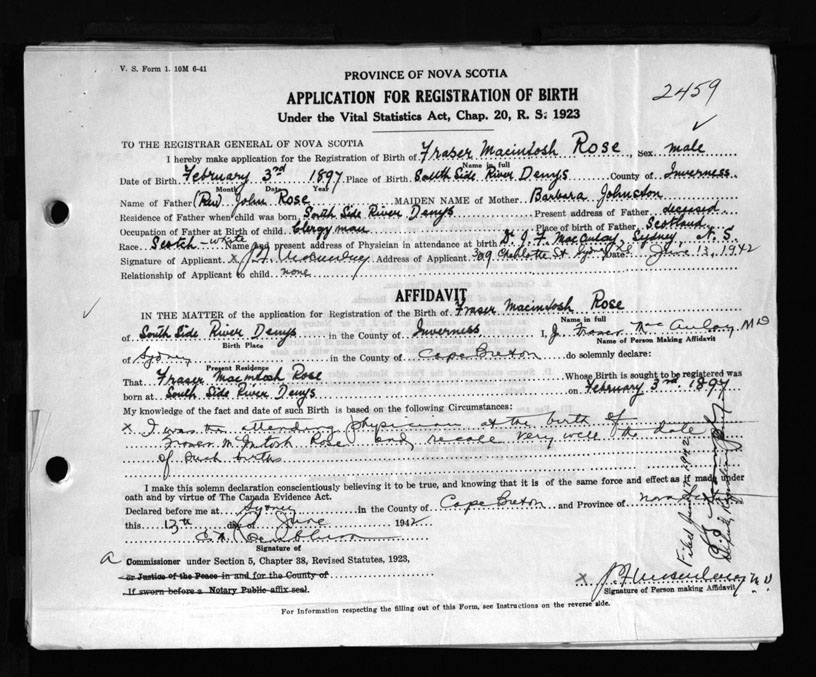 V. S. Form 1. 10M 6-41
PROVINCE OF NOVA SCOTIA
2459
APPLICATION FOR REGISTRATION OF BIRTH
Under the Vital Statistics Act, Chap. 20, R. S. 1923
TO THE REGISTRAR GENERAL OF NOVA SCOTIA
I hereby make application for the Registration of Birth of Fraser Macintosh Rose, Sex male
Name in full
Date of Birth February 3rd 1897 Place of Birth South Side River Denys County of Inverness
Month Date Year
Name of Father (Rev) John Rose MAIDEN NAME of Mother Barbara Johnston
Residence of Father when child was born South Side River Denys Present address of Father deceased
Occupation of Father at Birth of child Clergyman Place of birth of Father Scotland
Race Scotch - white Name and present address of Physician in attendance at birth Dr. J. F. MacAulay, Sydney, N. S.
Signature of Applicant x Address of Applicant 309 Charlotte St Sydney Date June 13, 1942
Relationship of Applicant to child none
AFFIDAVIT
IN THE MATTER of the application for Registration of the Birth of Fraser Macintosh Rose
Name in full
of South Side River Denys in the County of Inverness I, J. Fraser MacAulay, MD
Birth Place Name of Person Making Affidavit
of Sydney in the County of Cape Breton do solemnly declare:
Present Residence
That Fraser Macintosh Rose Whose Birth is sought to be registered was
born at South Side River Denys on February 3rd. 1897
My knowledge of the fact and date of such Birth is based on the following Circumstances:
x I was the attending physician at the birth of
Fraser McIntosh Rose and recall very well the date
of such birth
I make this solemn declaration conscientiously believing it to be true, and knowing that it is of the same force and effect as if made under
oath and by virtue of The Canada Evidence Act.
Declared before me at Sydney in the County of Cape Breton and Province of Nova Scotia
this 13th day of June 1942
Signature of
A Commissioner under Section 5, Chapter 38, Revised Statutes, 1923,
or Justice of the Peace in and for the County of
If sworn before a Notary Public affix seal.
x M.D.
Signature of Person making Affidavit
For Information respecting the filling out of this Form, see Instructions on the reverse side.
Filed June 1942